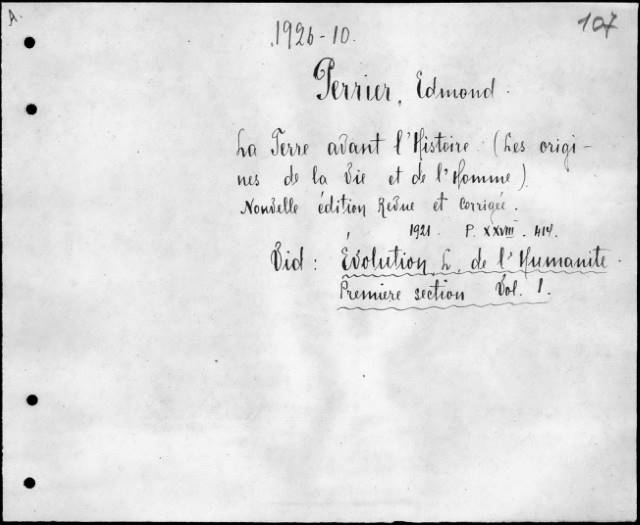 A.
1926-10.
107
Perrier, Edmond.
La Terre avant l'Histoire. (Les origi-
nes de la Vie et de l'Homme).
Nouvelle édition Revue et Corrigée.
1921. P. XXVIII. 414.
Vid: Évolution, L, de l'Humanite.
Premiere section Vol. 1.